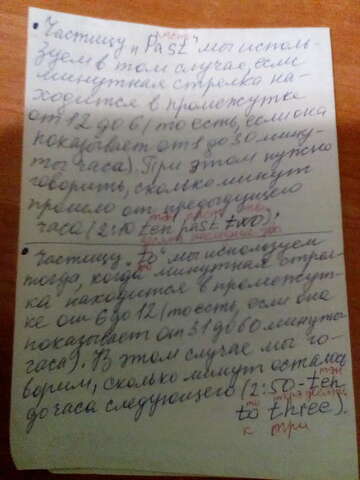 • Частицу „Past" мы исполь-
паст
зуем в том случае, если
минутная стрелка на-
ходится в промежутке
от 12 до 6 (то есть, если она
показывает от 1 до 30 мину-
ты часа). При этом нужно
говорить, сколько минут
прошло от предыдущего
часа (2:10 ten past two);
тэн паст
• Частицу „to" мы используем
тогда, когда минутная стрел-
ка находится в промежут-
ке от 6 до 12 (то есть, если она
показывает от 31 до 60 минуты
часа). В этом случае мы го-
ворим, сколько минут осталось
до часа следующего (2:50 - ten
тэн
to three).
к три